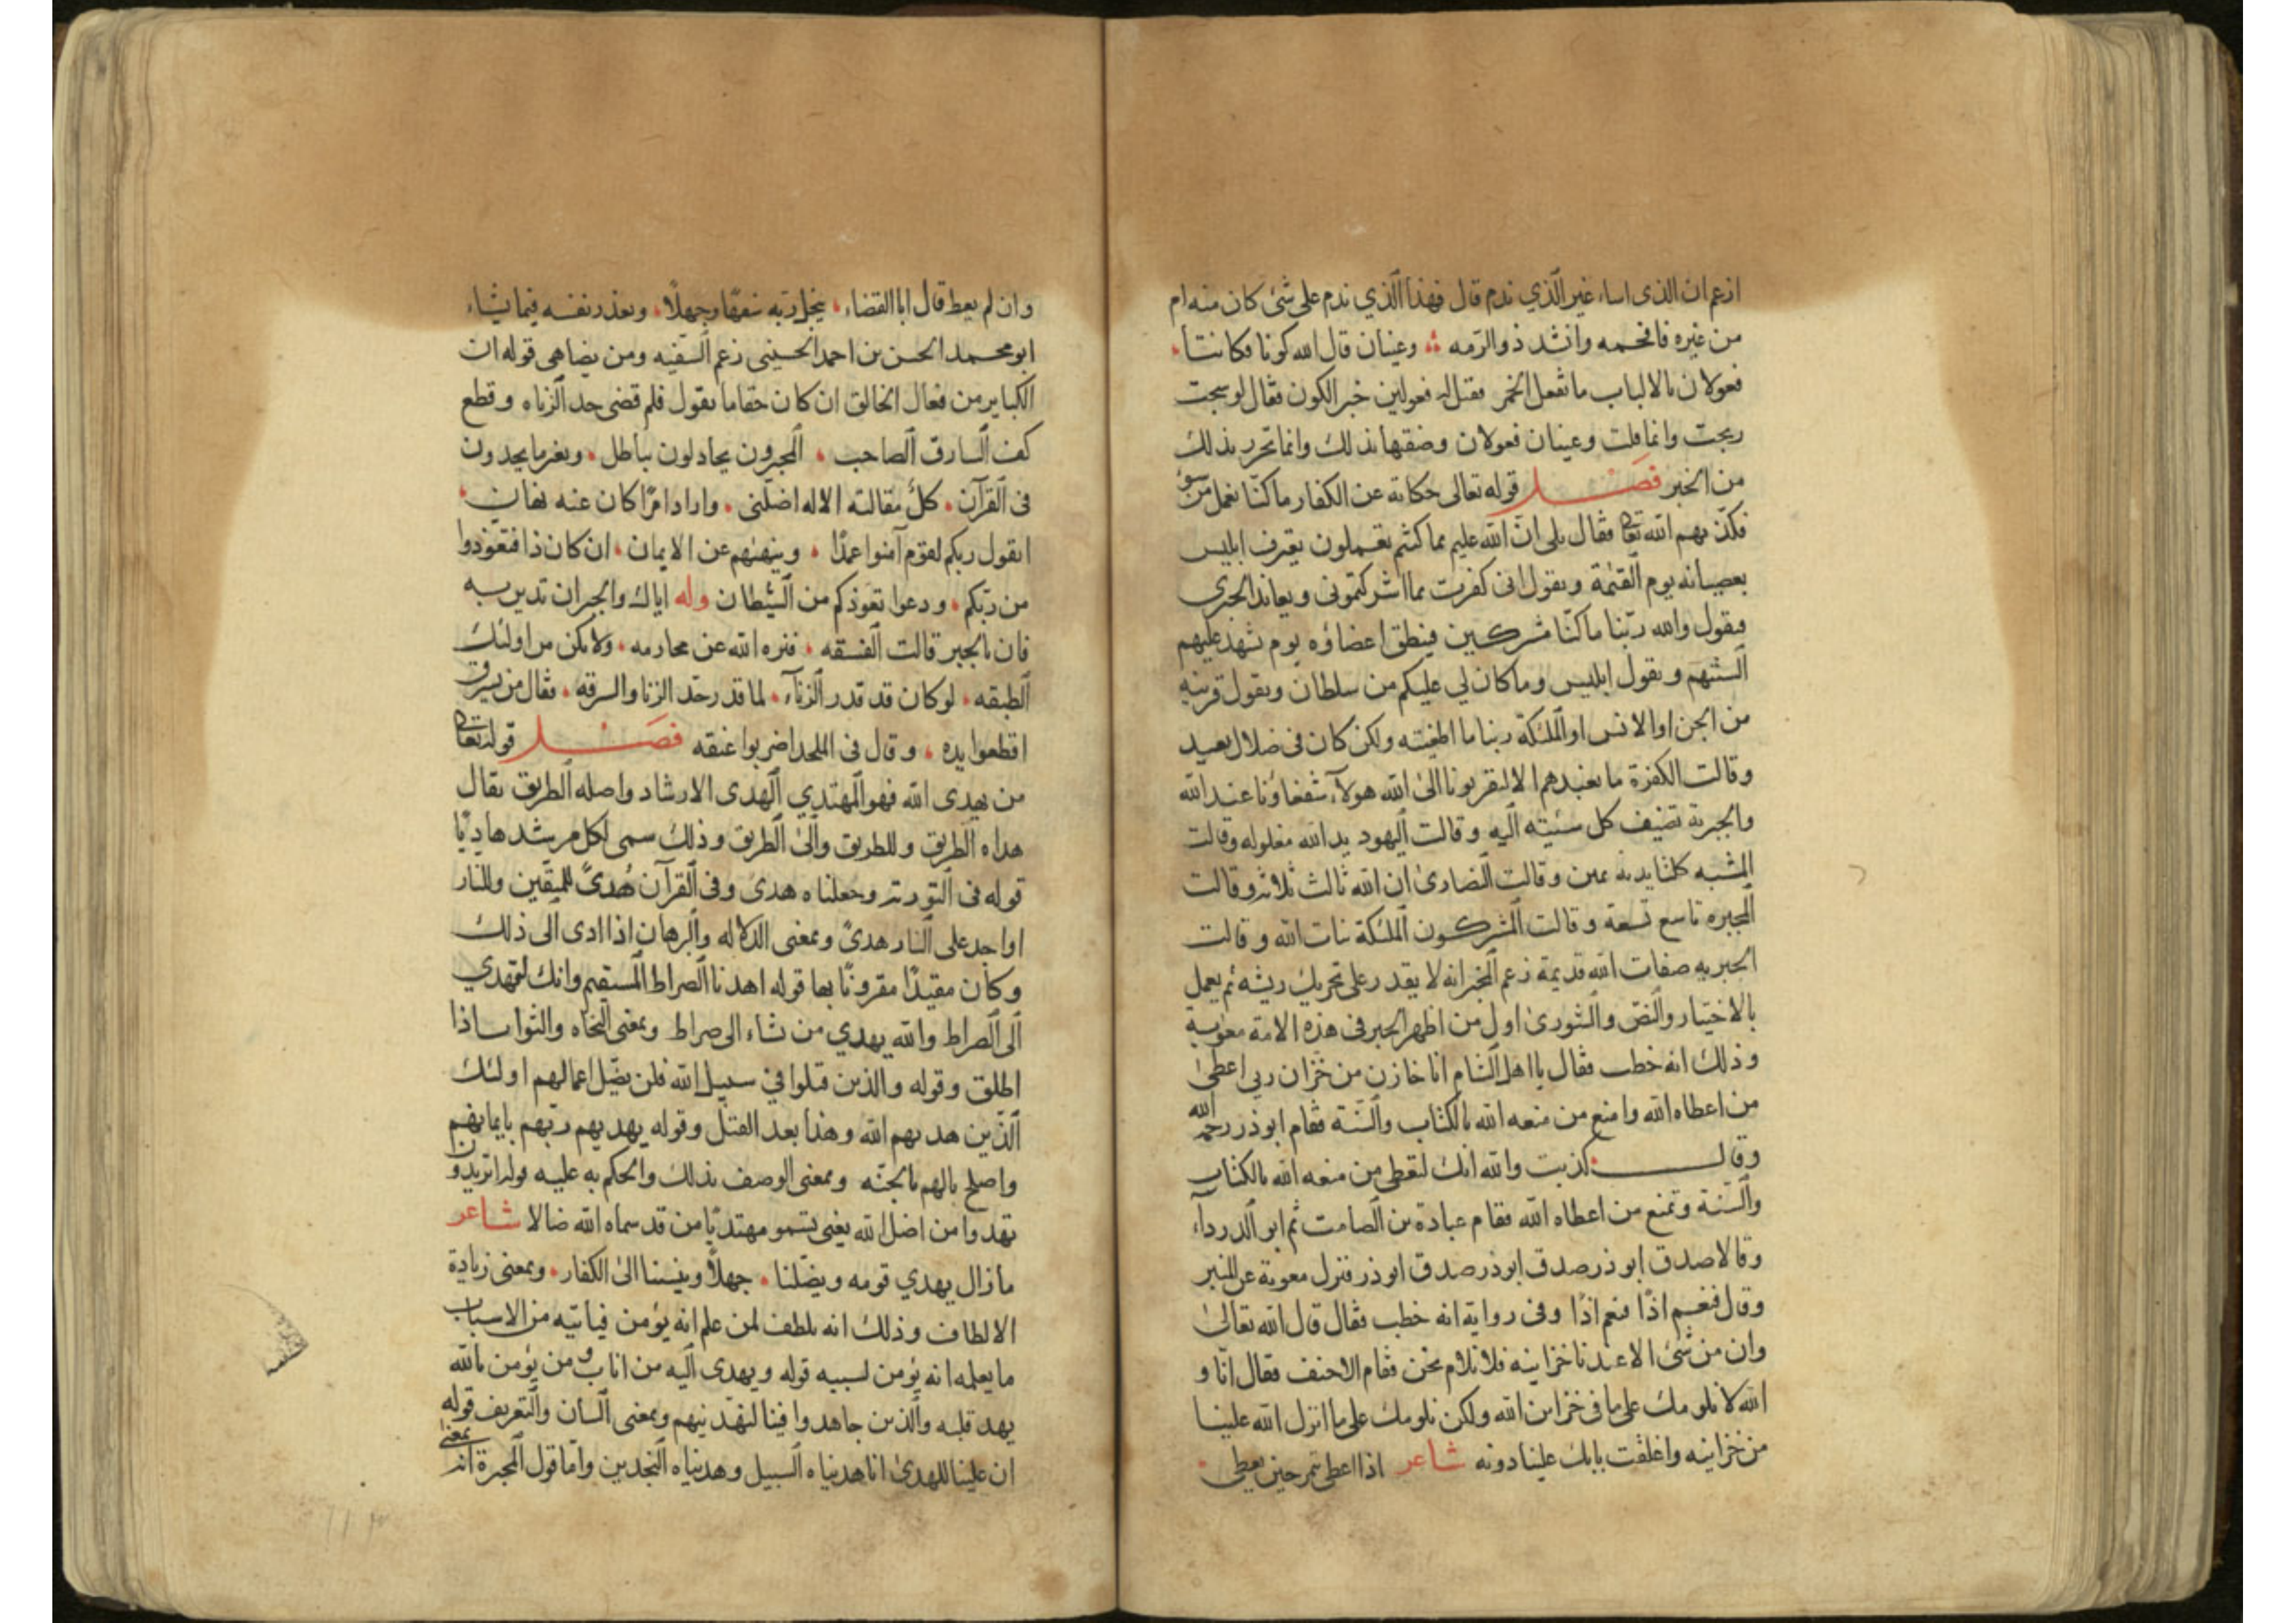 ازعم ان الذى اساء غير الذي ندم قال فهذا الذي ندم على شئ كان منه ام
من غيره فافحمه وانشد ذو الرمه وعينان قال الله كونا فكانتا
فعولان بالالباب ما تفعل الخمر فقيل له فعولين خبر الكون فقال لو سبحت
ربحت وانما قلت وعينان فعولان وصفتها بذلك وانما تحرر بذلك
من الخبر فصل قوله تعالى حكاية عن الكفار ما كنا نعمل من سوء
فكذبهم الله تعالى فقال بلى ان الله عليم بما كنتم تعملون يعترف ابليس
بعصيانه يوم القيمة ويقول انى كفرت بما اشركتمونى ويعاند الجبرى
فيقول والله ربنا ما كنا مشركين فينطق اعضاؤه يوم تشهد عليهم
السنتهم ويقول ابليس وما كان لي عليكم من سلطان ويقول قرينه
من الجن او الانس او الملئكة ربنا ما اطغيته ولكن كان فى ضلال بعيد
وقالت الكفرة ما نعبدهم الا ليقربونا الى الله هولاء شفعاؤنا عند الله
والجبرية تضيف كل سيئه اليه وقالت اليهود يد الله مغلوله وقالت
المشبه كلتا يديه يمين وقالت النصارى ان الله ثالث ثلاثة وقالت
المجبره تاسع تسعة وقالت المشركون الملئكة بنات الله وقالت
الجبريه صفات الله قديمة زعم المجبر انه لا يقدر على تحريك ريشه ثم يعمل
بالاختيار والنص والشورى اول من اظهر الجبر فى هذه الامة معوية
وذلك انه خطب فقال يا اهل الشام انا خازن من خزان ربي اعطى
من اعطاه الله وامنع من منعه الله بالكتاب والسنة فقام ابو ذر رحمه الله
وقال كذبت والله انك لتعطى من منعه الله بالكتاب
والسنة وتمنع من اعطاه الله فقام عبادة بن الصامت ثم ابو الدرداء
وقالا صدق ابو ذر صدق ابوذر صدق ابوذر فنزل معوية عن المنبر
وقال فنعم اذا فنعم اذا وفى رواية انه خطب فقال قال الله تعالى
وان من شئ الا عندنا خزاينه فلا نلام نحن فقام الاحنف فقال انا و
الله لا نلومك على ما فى خزاين الله ولكن نلومك على ما انزل الله علينا
من خزاينه واغلقت بابك علينا دونه شاعر اذا اعطى تمر حين يعطى
وان لم يعط قال ابا القضاء يبخل ربه سفها وجهلا ويعذر نفسه فيما يشاء
ابو محمد الحسن بن احمد الحسينى زعم السفيه ومن يضاهى قوله ان
الكباير من فعال الخالق ان كان حقا ما يقول فلم قضى حد الزناه وقطع
كف السارق الصاحب المجبرون يجادلون بباطل وبغير ما يجدون
فى القرآن كل مقالته الاله اضلنى واراد امرا كان عنه نهان
ايقول ربكم لقوم آمنوا عمدا وينهنهم عن الايمان ان كان ذا فتعوذوا
من ربكم ودعوا تعوذكم من الشيطان وله اياك والجبر ان تدين به
فان بالجبر قالت الفسقه فنزه الله عن محارمه ولا تكن من اولئك
الطبقه لو كان قد قدر الزناء لما قدر حد الزنا والسرقه فقال من يسرق
اقطعوا يده وقال فى الملحد اضربوا عنقه فصل قوله تعالى
من يهدى الله فهو المهتدي الهدى الارشاد واصله الطريق يقال
هداه الطريق وللطريق والى الطريق وذلك سمى لكل مرشد هاديا
قوله فى التورية وجعلناه هدى وفى القرآن هدى للمتقين وللنار
او اجد على النار هدى وبمعنى الدلاله والبرهان اذا ادى الى ذلك
وكان مقيدا مقرونا بها قوله اهدنا الصراط المستقيم وانك لتهدي
الى الصراط والله يهدي من شاء الى صراط وبمعنى النجاه والثواب اذا
اطلق وقوله والذين قتلوا في سبيل الله فلن يضل اعمالهم اولئك
الذين هديهم الله وهذا بعد القتل وقوله يهديهم ربهم بايمانهم
واصلح بالهم بالجنه وبمعنى الوصف بذلك والحكم به عليه قوله اتريدون
تهدوا من اضل الله يعنى يسمو مهتديا من قد سماه الله ضالا شاعر
ما زال يهدي قومه ويضلنا جهلا وينسبنا الى الكفار وبمعنى زيادة
الالطاف وذلك انه يلطف لمن علم انه يؤمن فياتيه من الاسباب
ما يعلم انه يؤمن لسببه قوله ويهدى اليه من اناب ومن يؤمن بالله
يهد قلبه والذين جاهدوا فينا لنهدينهم وبمعنى البيان والتعريف قوله
ان علينا للهدى انا هديناه السبيل وهديناه النجدين واما قول المجبرة انه بمعنى